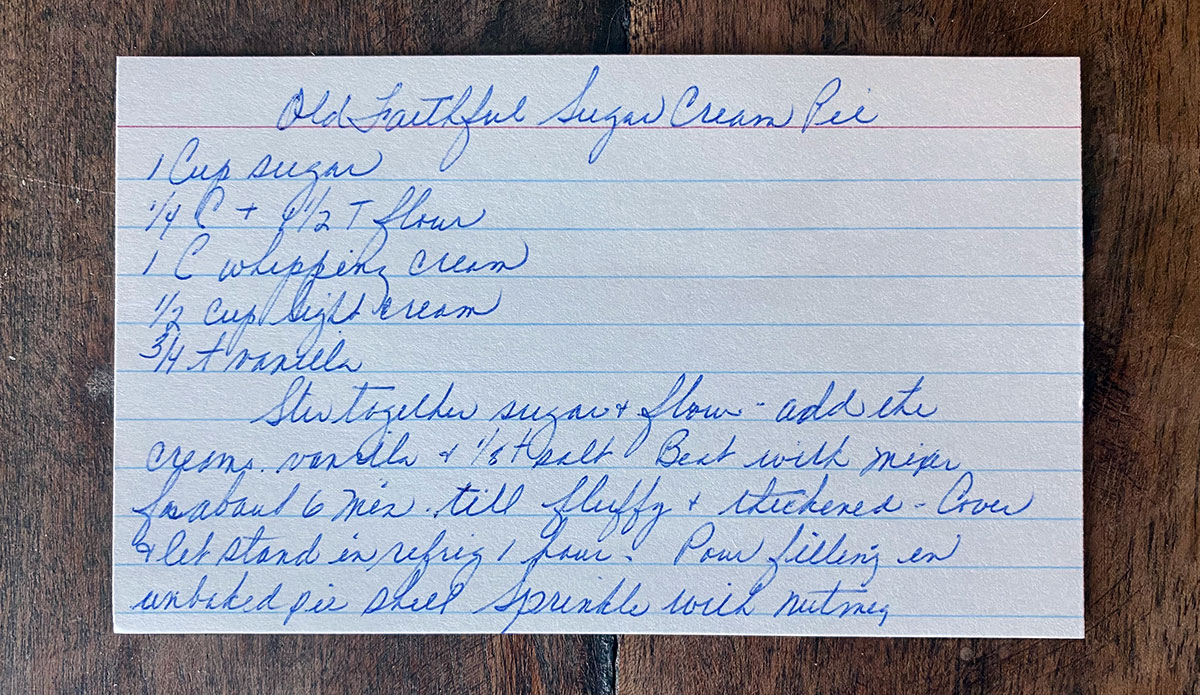 Old Faithful Sugar Cream Pie
1 Cup sugar
1/4 C + 1 1/2 T flour
1 C whipping cream
1/2 cup light cream
3/4 t vanilla
Stir together sugar + flour - add the
creams. vanilla + 1/8 t salt Beat with mixer
for about 6 min. till fluffy + thickened - Cover
+ let stand in refrig 1 hour. Pour filling in
unbaked pie shell Sprinkle with nutmeg